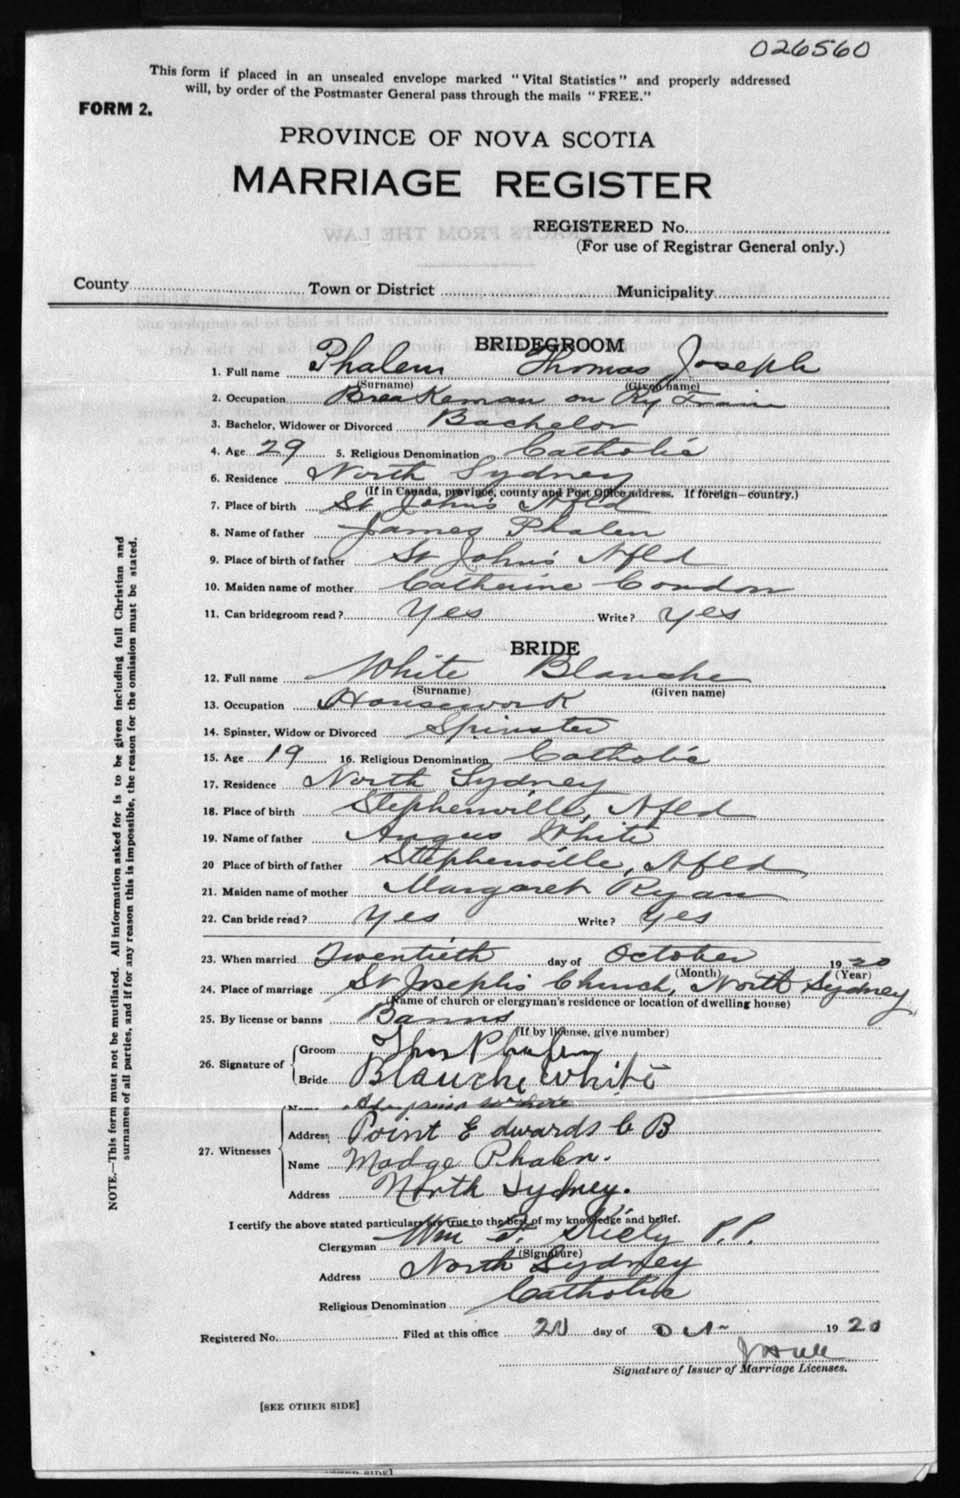 026560
This form if placed in an unsealed envelope marked "Vital Statistics" and properly addressed
will, by order of the Postmaster General pass through the mails "FREE."
FORM 2.
PROVINCE OF NOVA SCOTIA
MARRIAGE REGISTER
REGISTERED No.
(For use of Registrar General only.)
County Town or District Municipality
BRIDEGROOM
1. Full name Phalen Thomas Joseph
(Surname) (Given name)
2. Occupation Breakeman on Ry Train
3. Bachelor, Widower or Divorced Bachelor
4. Age 29 5. Religious Denomination Catholic
6. Residence North Sydney
(If in Canada, province, county and Post Office address. If foreign—country.)
7. Place of birth St John's Nfld
8. Name of father James Phalen
9. Place of birth of father St John's Nfld
10. Maiden name of mother Catherine Condon
11. Can bridegroom read? Yes Write? Yes
BRIDE
12. Full name White Blanche
(Surname) (Given name)
13. Occupation Housework
14. Spinster, Widow or Divorced Spinster
15. Age 19 16. Religious Denomination Catholic
17. Residence North Sydney
18. Place of birth Stephenville, Nfld
19. Name of father Angus White
20 Place of birth of father Stephenville, Nfld
21. Maiden name of mother Margaret Ryan
22. Can bride read? Yes Write? Yes
23. When married Twentieth day of October 1920
(Month) (Year)
24. Place of marriage St Joseph's Church, North Sydney
(Name of church or clergyman's residence or location of dwelling house)
25. By license or banns Banns
(If by license, give number)
26. Signature of Groom Thos Phalen
Bride Blanche White
27. Witnesses
Name
Address Point Edwards C B
Name Madge Phalen.
Address North Sydney.
I certify the above stated particulars are true to the best of my knowledge and belief.
Clergyman Wm F. Kiely P.P.
(Signature)
Address North Sydney
Religious Denomination Catholic
Registered No. Filed at this office 20 day of Oct 1920
Signature of Issuer of Marriage Licenses.
[SEE OTHER SIDE]
NOTE.—This form must not be mutilated. All information asked for is to be given including full Christian and
surnames of all parties, and if for any reason this is impossible, the reason for the omission must be stated.